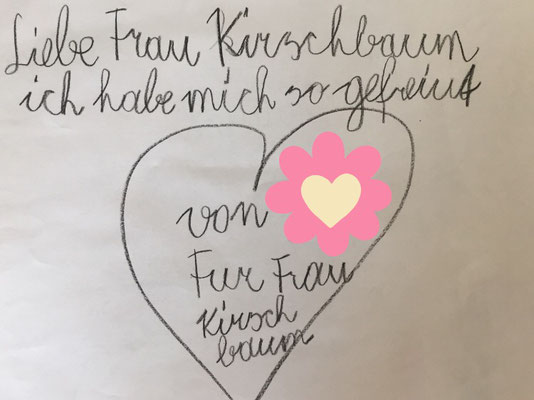 Liebe Frau Kirschbaum
ich habe mich so gefreiut
von
Fur Frau
Kirsch
baum